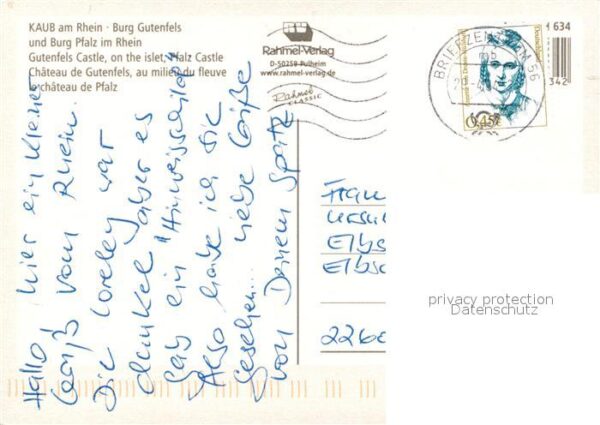 KAUB am Rhein · Burg Gutenfels
und Burg Pfalz im Rhein
Gutenfels Castle, on the islet, Pfalz Castle
Château de Gutenfels, au milieu du fleuve
le château de Pfalz
Rahmel-Verlag
D-50259 Pulheim
www.rahmel-verlag.de
Rahmel
CLASSIC
BRIEFZENTRUM 56
Deutschland
0,45€
1 634
342
Hallo,
hier ein kleiner
Gruß vom Rhein.
Die Loreley war
dunkel aber es
gab ein "Hinweisschild"
Also habe ich sie
gesehen... Liebe Grüße
von Deinem Spatz
Frau
Elbs
Elbsc
226
privacy protection
Datenschutz